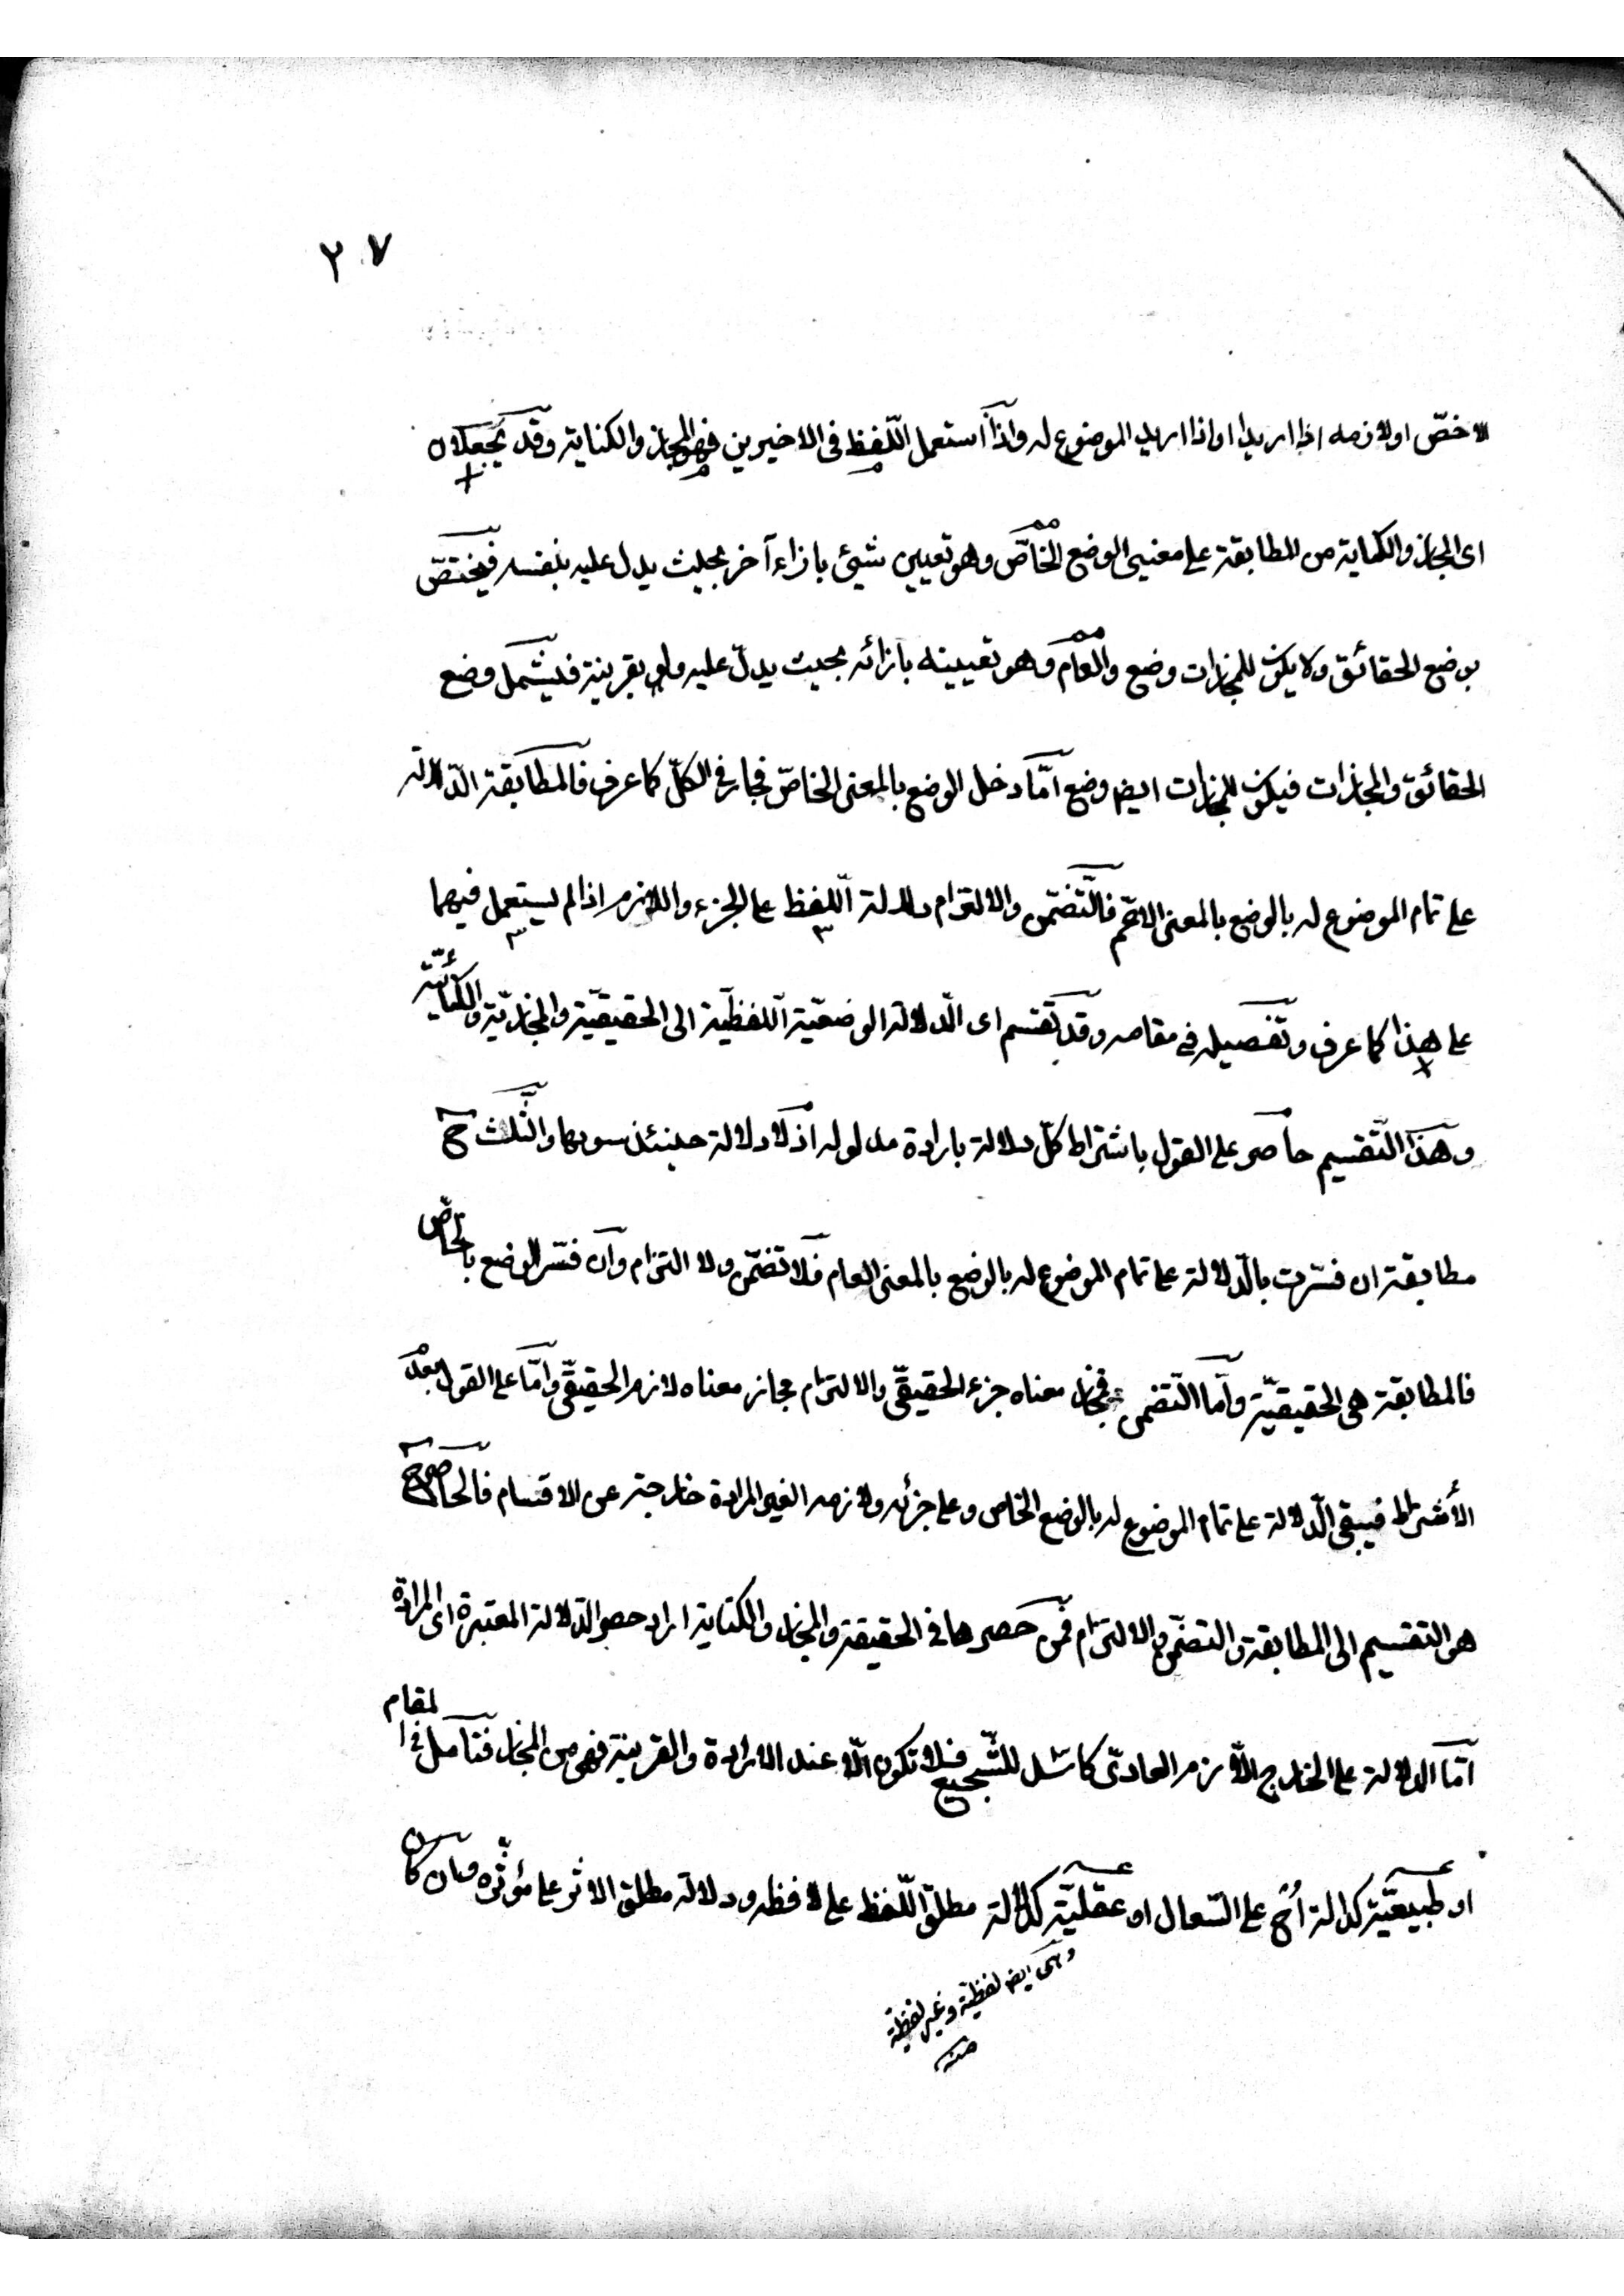 ٢٧
الاخصّ او لازمه اذا اريدا او اذا اريد الموضوع له واذا استعمل اللّفظ فى الاخيرين فهو المجاز والكناية وقد يجعلان
اى المجاز والكناية من المطابقة على معنيى الوضع الخاصّ وهو تعيين شيئ بازاء آخر بحيث يدل عليه بنفسه فيختصّ
بوضع الحقائق ولا يكون للمجازات وضع والعامّ وهو تعيينه بازائه بحيث يدلّ عليه ولو بقرينة فيشمل وضع
الحقائق والمجازات فيكون للمجازات ايضا وضع امّا دخل الوضع بالمعنى الخاصّ فجار فى الكلّ كما عرف فالمطابقة الدّلالة
على تمام الموضوع له بالوضع بالمعنى الاعمّ فالتّضمّن والالتزام دلالة اللّفظ على الجزء واللازم اذا لم يستعمل فيهما
على هذا كما عرف وتفصيله فى مقامه وقد تقسم اى الدّلالة الوضعيّة اللفظيّة الى الحقيقيّة والمجازيّة والكنائيّة
وهذا التّقسيم حاصر على القول باشتراط كلّ دلالة بارادة مدلوله اذ لا دلالة حينئذ سويها والثّلث ح
مطابقة ان فسّرت بالدّلالة على تمام الموضوع له بالوضع بالمعنى العام فلا تضمّن ولا التزام وان فسّر الوضع بالخاصّ
فالمطابقة هى الحقيقيّة وامّا التّضمن فمجاز معناه جزء الحقيقىّ والالتزام مجاز معناه لازم الحقيقىّ وامّا على القول بعدم
الأشتراط فيبقى الدّلالة على تمام الموضوع له بالوضع الخاص وعلى جزئه ولازمه الغير المرادة خارجة عن الاقسام فالحاصر ح
هو التقسيم الى المطابقة والتضمّن والالتزام فمن حصرها فى الحقيقة والمجاز والكناية اراد حصر الدّلالة المعتبرة اى المرادة
امّا الدلالة على الخارج اللّازم العادىّ كاسد للشّجيع فلا تكون الّا عند الارادة والقرينة فهى من المجاز فتأمل فى المقام
او طبيعيّة كدلالة اُحْ على السّعال او عقليّة كدلالة مطلق اللّفظ على لافظه ودلالة مطلق الاثر على مؤثّره وان كان
وهى ايضا لفظية وغير لفظية
منه